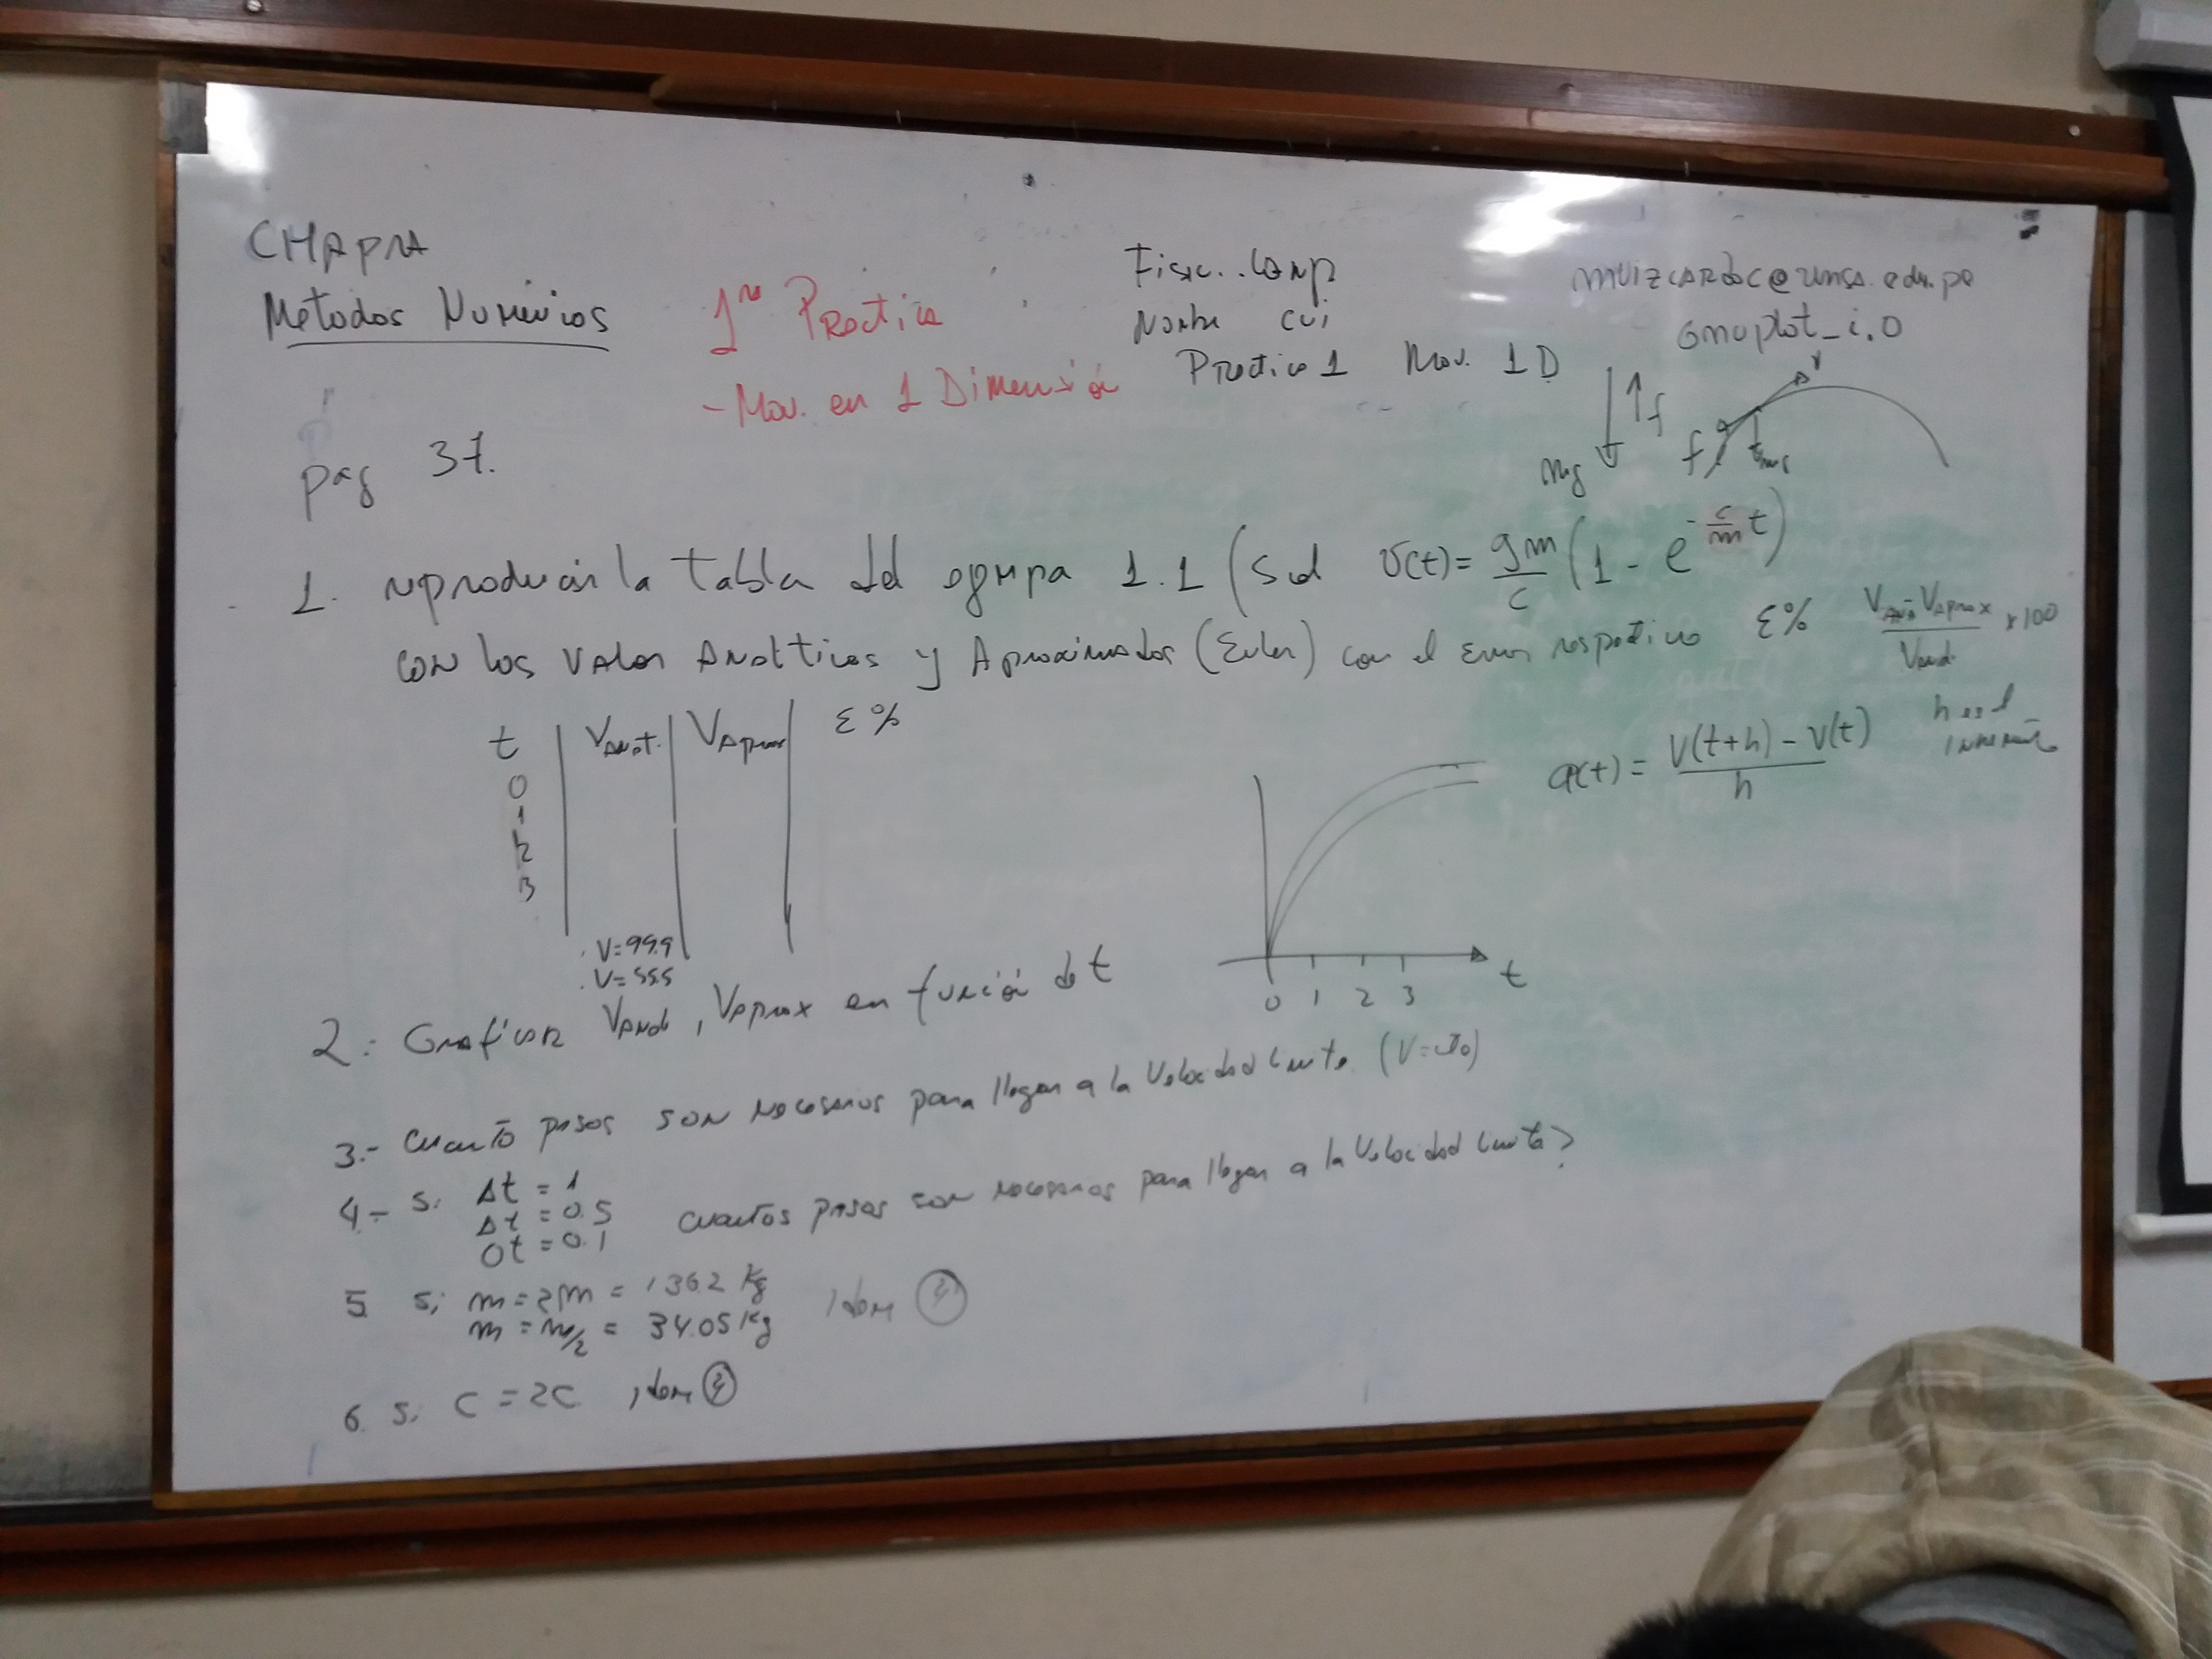 CHAPRA
Métodos Numéricos
1ra Practica
- Mov. en 1 Dimensión
Fisic. Comp
Nombre cui
Practica 1 Mov. 1 D
gnuplot_i.0
mg
f
v
f
pag 37.
1. reproducir la tabla del 1.1 (Sol v(t) = gm/c (1 - e^(-c/m t)
con los valor Analíticos y Aproximados (Euler) con el error respectivo ε% (VAna - VAprox)/VAnal. × 100
t | VAnat. | VAprox | ε %
0
1
2
3
. V=99.9
. V=55.5
a(t) = (V(t+h) - V(t))/h
h es el
0 1 2 3 t
2.- Graficar VAnal, VAprox en función de t
3.- Cuanto pasos son necesarios para llegar a la Velocidad limite
4.- Si Δt = 1
Δt = 0.5
Δt = 0.1
cuantos pasos son necesarios para llegar a la Velocidad limite?
5 Si m = 2m = 136.2 Kg
m = m/2 = 34.05 Kg
idem
6. Si C = 2C idem